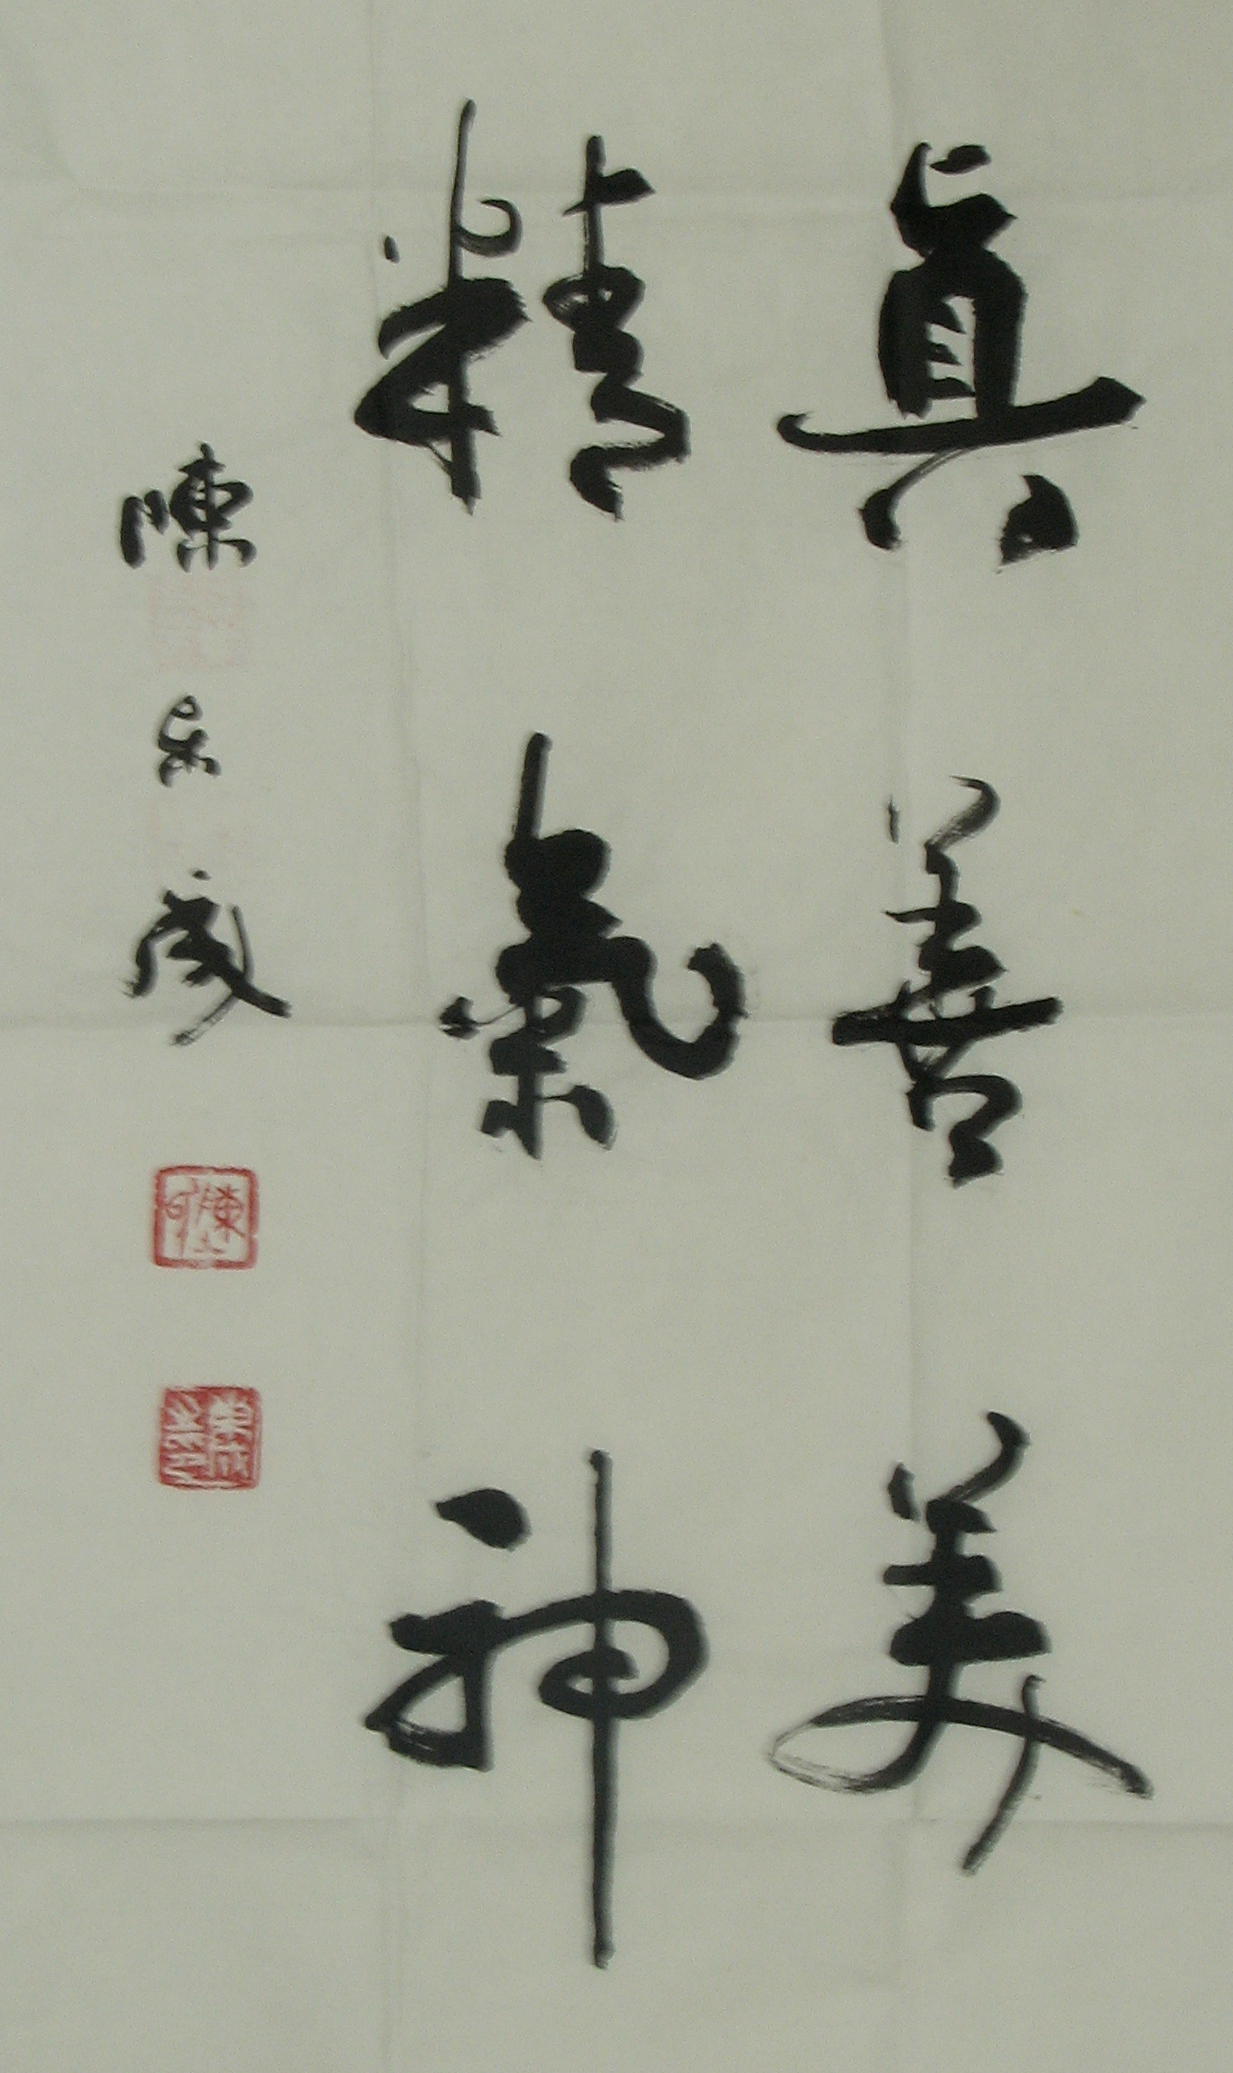 真善美
精氣神
陳樂成